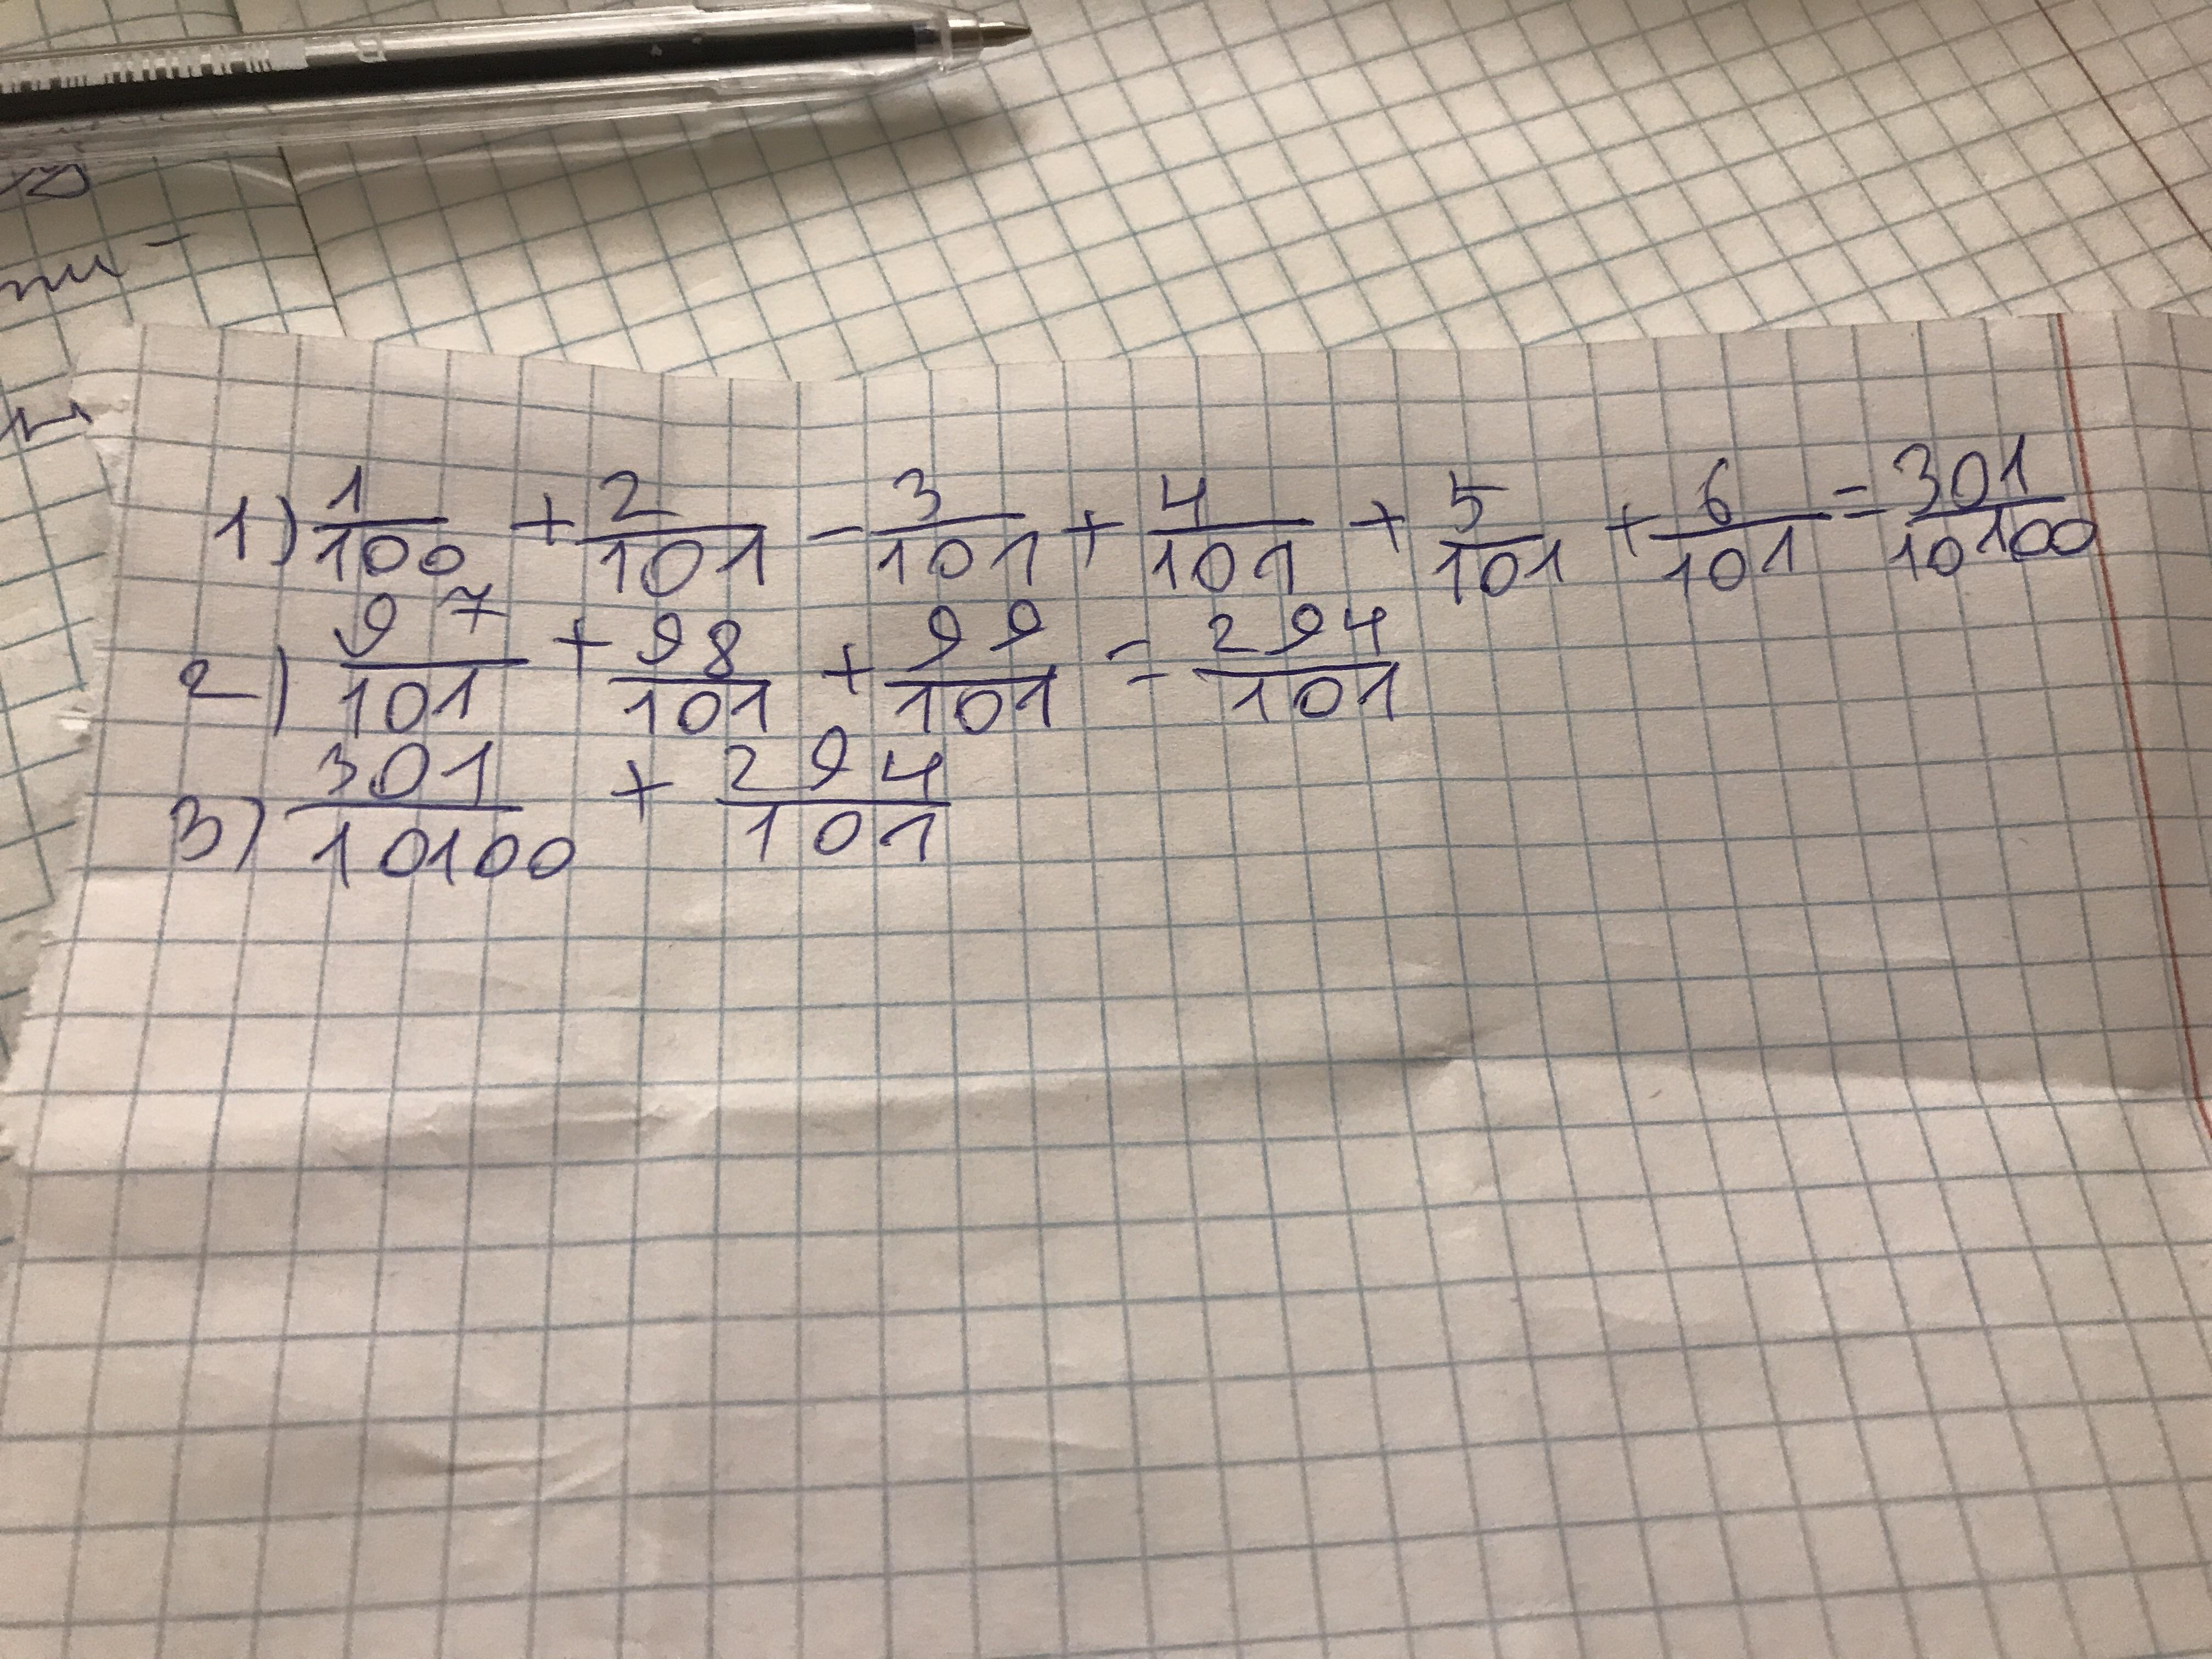 ти-
1) 1/100 + 2/101 - 3/101 + 4/101 + 5/101 + 6/101 = 301/10100
2) 97/101 + 98/101 + 99/101 = 294/101
3) 301/10100 + 294/101